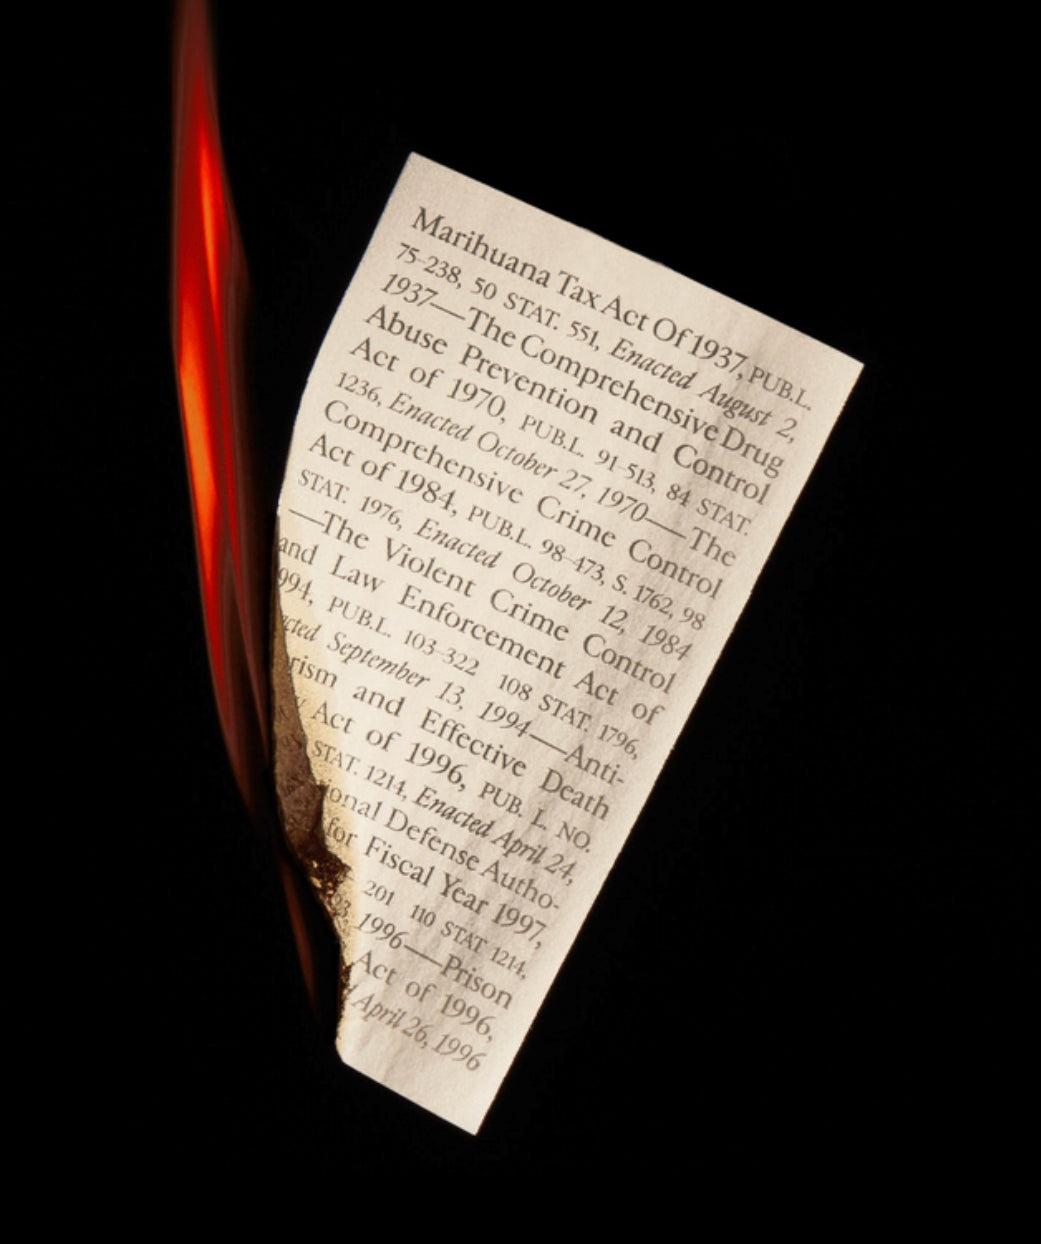 Marihuana Tax Act Of 1937, PUB.L.
75-238, 50 STAT. 551, Enacted August 2,
1937—The Comprehensive Drug
Abuse Prevention and Control
Act of 1970, PUB.L. 91-513, 84 STAT.
1236, Enacted October 27, 1970—The
Comprehensive Crime Control
Act of 1984, PUB.L. 98-473, S. 1762, 98
STAT. 1976, Enacted October 12, 1984
—The Violent Crime Control
and Law Enforcement Act of
994, PUB.L. 103-322 108 STAT. 1796,
acted September 13, 1994—Anti-
rism and Effective Death
y Act of 1996, PUB. L. NO.
STAT. 1214, Enacted April 24,
ional Defense Autho-
for Fiscal Year 1997,
201 110 STAT 1214,
93, 1996—Prison
Act of 1996,
April 26, 1996